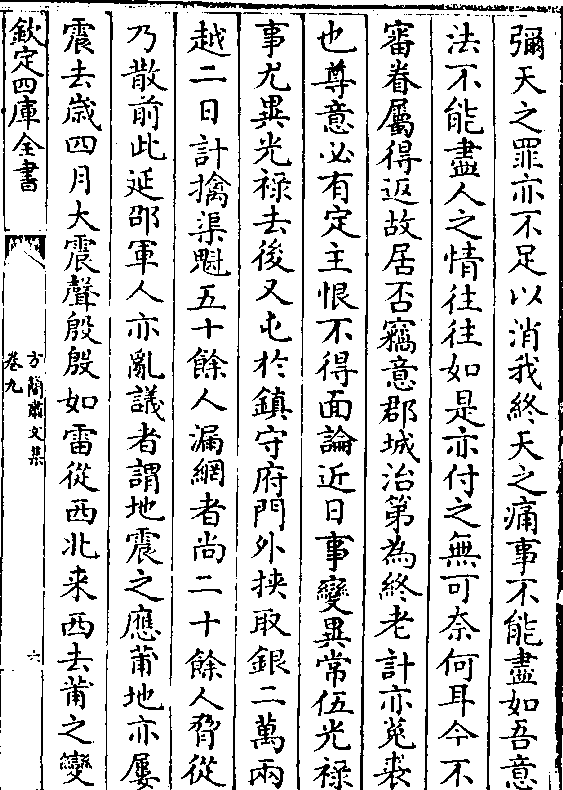 彌天之罪亦不足以消我終天之痛事不能盡如吾意
法不能盡人之情往往如是亦付之無可奈何耳今不
審眷屬得返故居否竊意郡城治第為終老計亦菟裘
也尊意必有定主恨不得面論近日事變異常伍光祿
事尤異光祿去後又屯於鎮守府門外挾取銀二萬兩
越二日計擒渠魁五十餘人漏網者尚二十餘人脅從
乃散前此延邵軍人亦亂議者謂地震之應莆地亦屢
震去歲四月大震聲殷殷如雷從西北来西去莆之變
欽定四庫全書
方簡肅文集
卷九
六